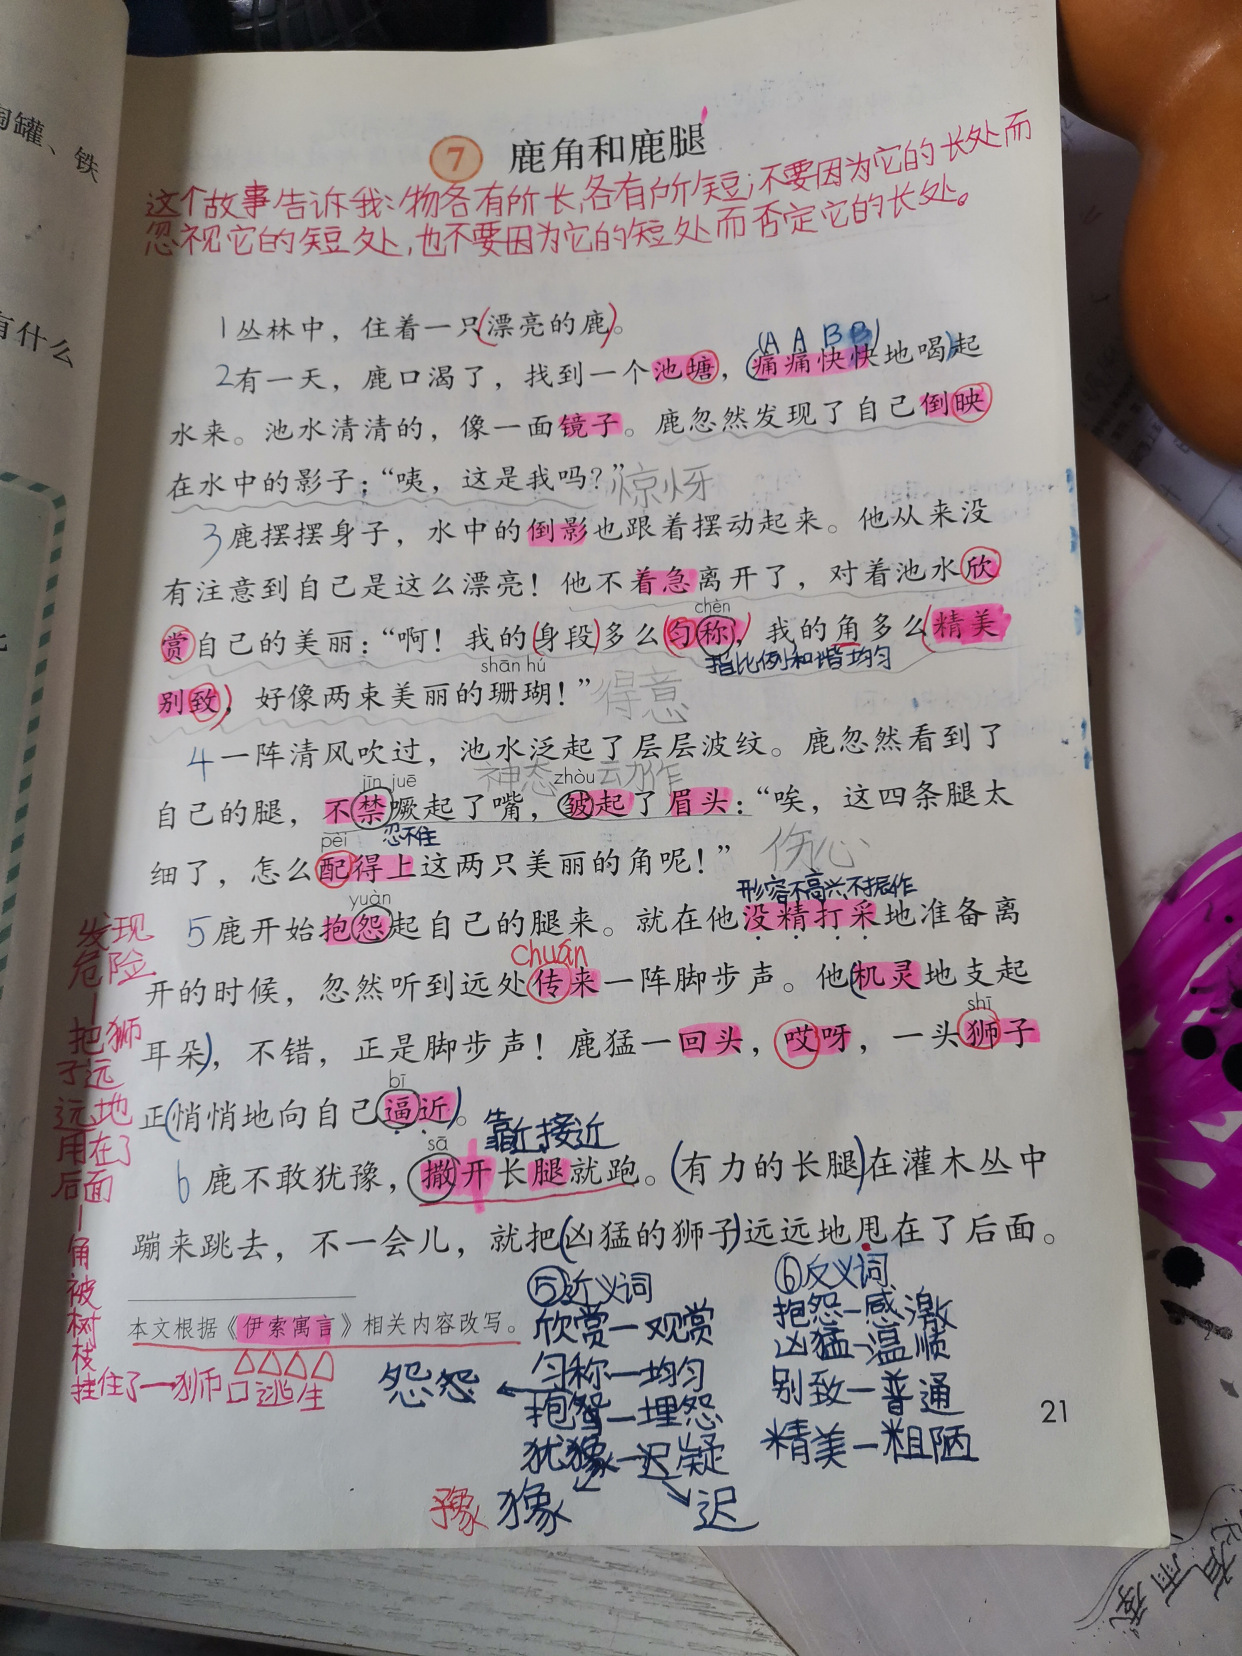 陶罐、铁
有什么
7 鹿角和鹿腿
这个故事告诉我:物各有所长,各有所短;不要因为它的长处而
忽视它的短处,也不要因为它的短处而否定它的长处。
1丛林中，住着一只(漂亮的鹿)。
(AABB)
2有一天，鹿口渴了，找到一个池塘，(痛痛快快地喝)起
水来。池水清清的，像一面镜子。鹿忽然发现了自己倒映
在水中的影子：“咦，这是我吗？”惊讶
3鹿摆摆身子，水中的倒影也跟着摆动起来。他从来没
有注意到自己是这么漂亮！他不着急离开了，对着池水欣
chèn
赏自己的美丽：“啊！我的(身段)多么(匀称)，我的角多么(精美
shān hú
指比例和谐均匀
别致)，好像两束美丽的珊瑚！”得意
4一阵清风吹过，池水泛起了层层波纹。鹿忽然看到了
jīn juē 神态 zhòu 动作
自己的腿，不禁噘起了嘴，皱起了眉头：“唉，这四条腿太
pèi 忍不住
细了，怎么配得上这两只美丽的角呢！”伤心
yuàn 形容不高兴不振作
5鹿开始抱怨起自己的腿来。就在他没精打采地准备离
chuán
开的时候，忽然听到远处传来一阵脚步声。他(机灵地支起
shī
耳朵)，不错，正是脚步声！鹿猛一回头，哎呀，一头狮子
bī
正(悄悄地向自己逼近)。
靠近接近
sā
6鹿不敢犹豫，撒开长腿就跑。(有力的长腿)在灌木丛中
蹦来跳去，不一会儿，就把(凶猛的狮子)远远地甩在了后面。
发现
危险
—
把狮
子远
远地
用在了
后面
—
角
被
树
枝
挂住了—狮口逃生
本文根据《伊索寓言》相关内容改写。
⑤近义词
欣赏—观赏
匀称—均匀
怨怨
抱怨—埋怨
犹豫—迟疑
豫
迟
⑥反义词
抱怨—感激
凶猛—温顺
别致—普通
精美—粗陋
21